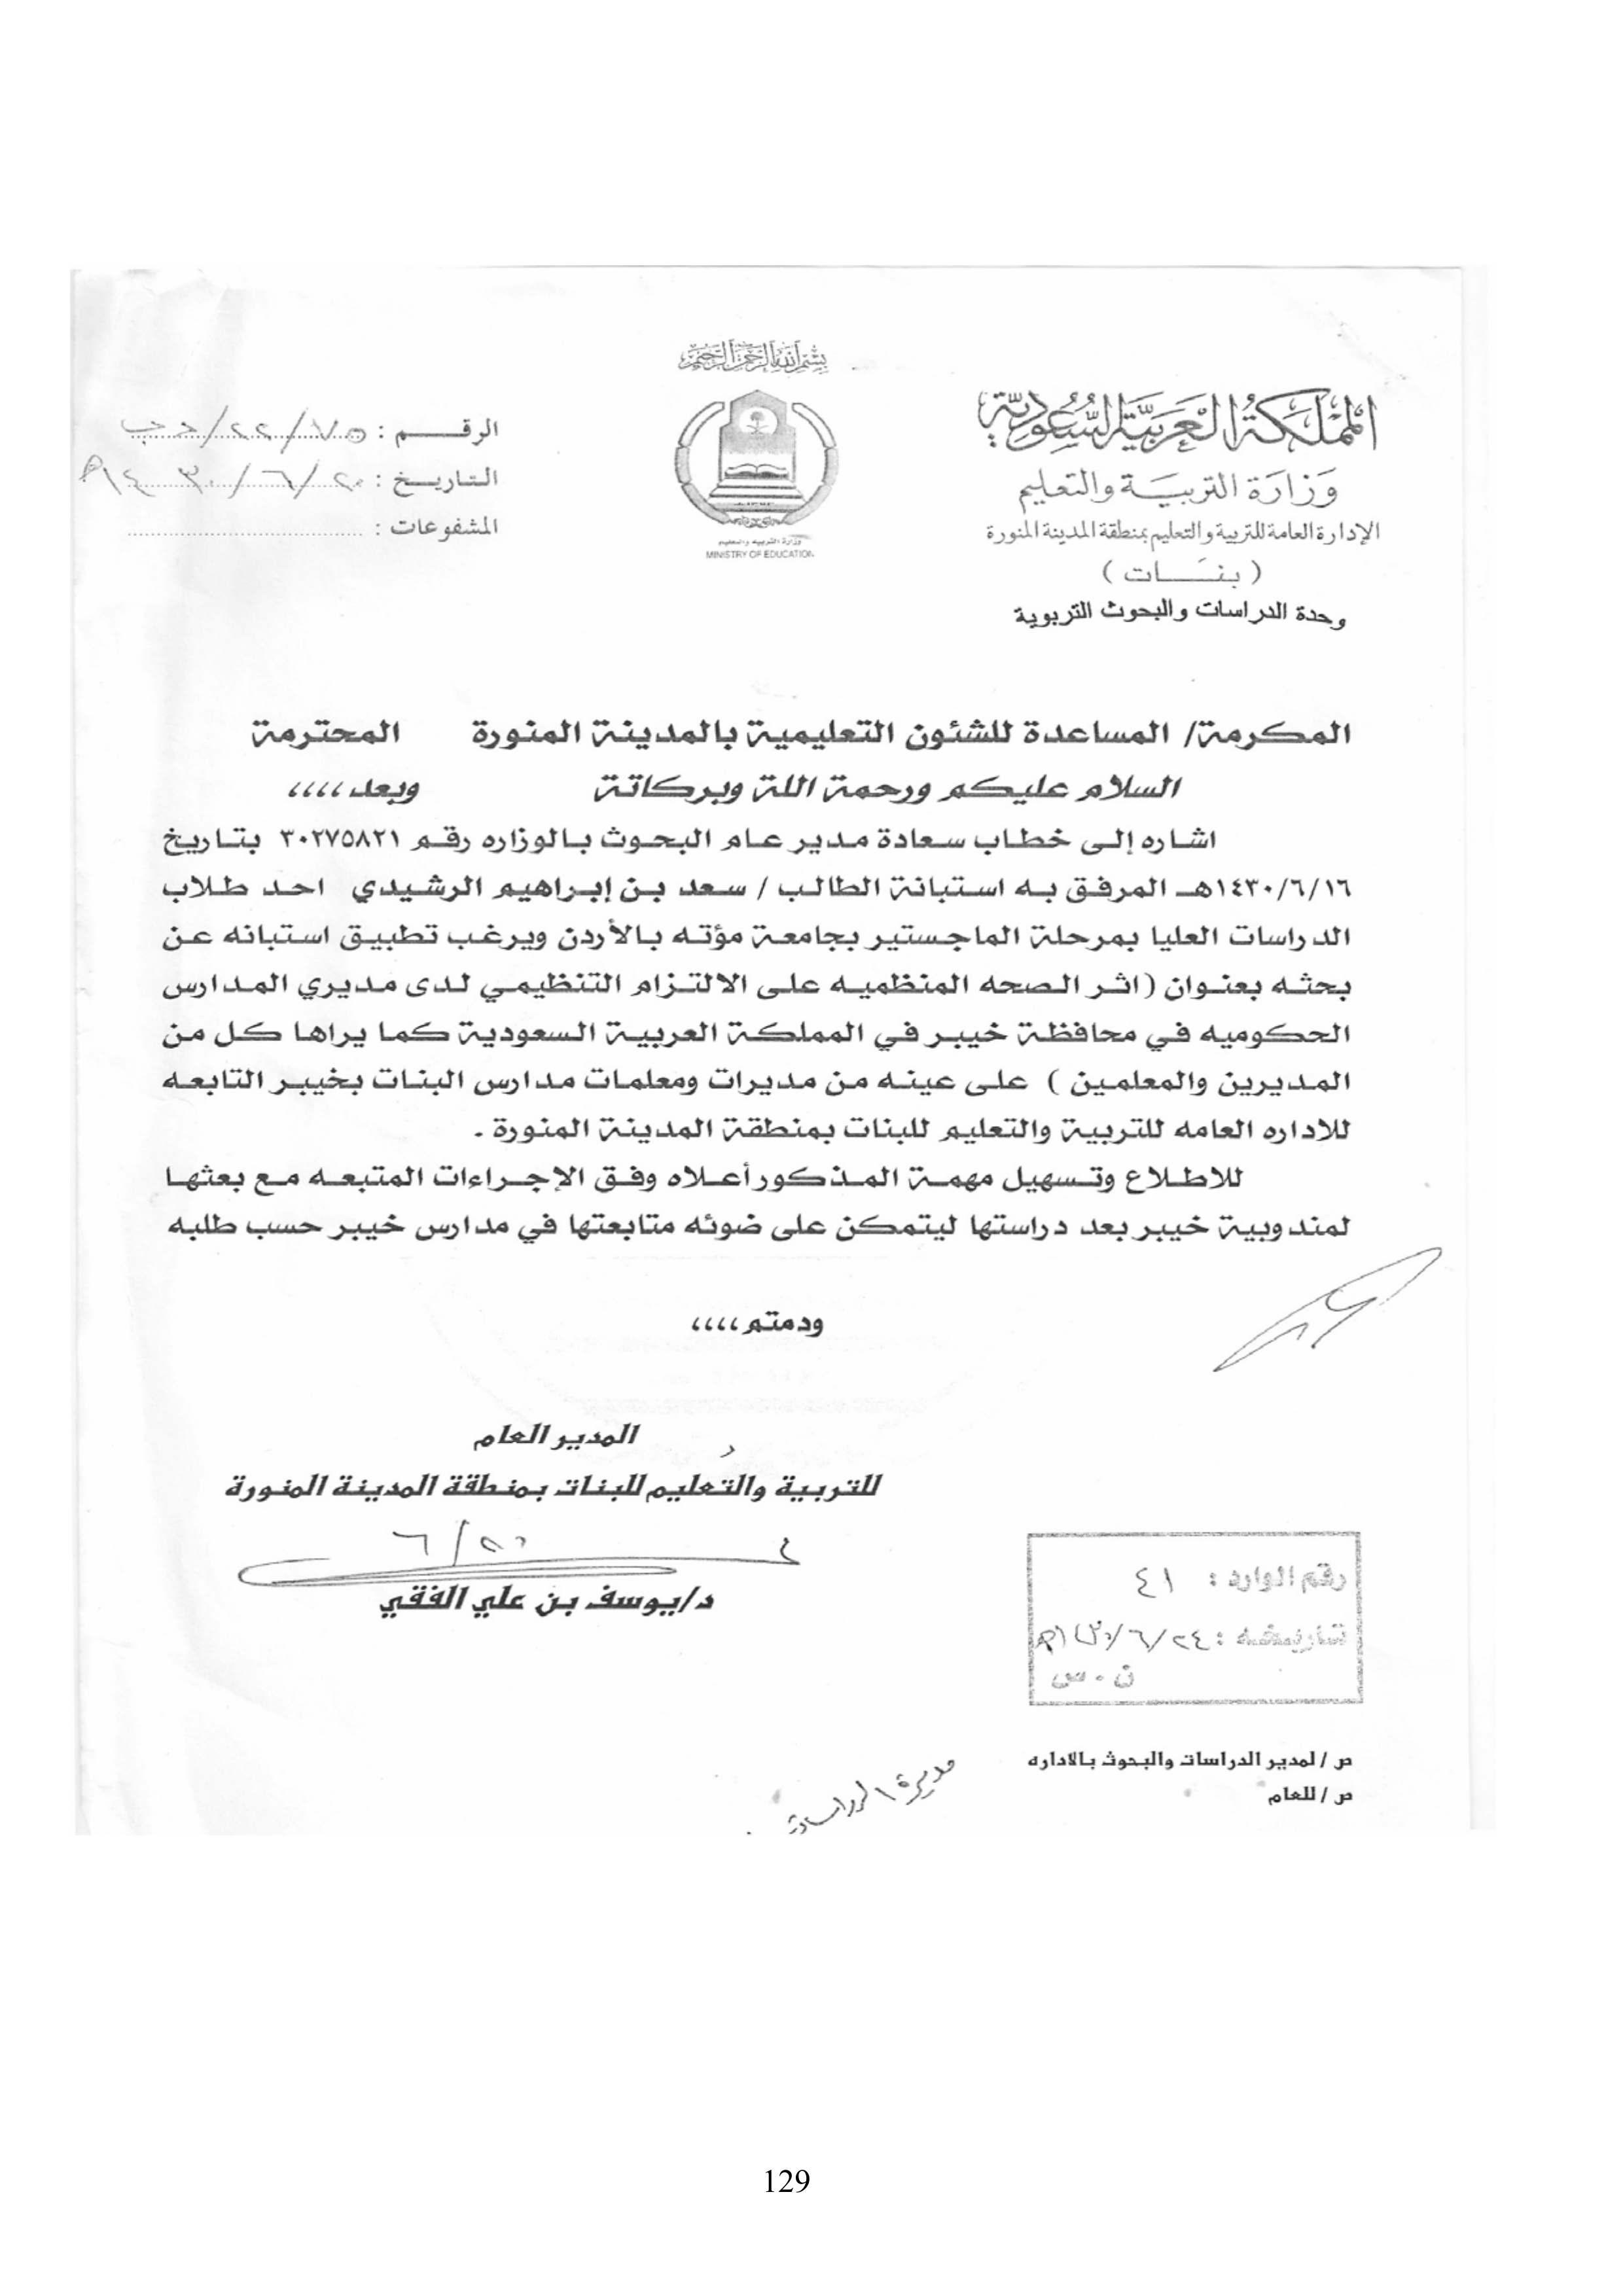 بسم الله الرحمن الرحيم
المملكة العربية السعودية
وزارة التربية والتعليم
الإدارة العامة للتربية والتعليم بمنطقة المدينة المنورة
( بنات )
وحدة الدراسات والبحوث التربوية
وزارة التربية والتعليم
MINISTRY OF EDUCATION
الرقم :
التاريخ : ٢٠/٦/١٤٣٠هـ
المشفوعات :
المكرمة/ المساعدة للشئون التعليمية بالمدينة المنورة المحترمة
السلام عليكم ورحمة اللة وبركاتة وبعد ،،،،
اشاره إلى خطاب سعادة مدير عام البحوث بالوزاره رقم ٣٠٢٧٥٨٢١ بتاريخ
١٤٣٠/٦/١٦هـ المرفق به استبانة الطالب / سعد بن إبراهيم الرشيدي احد طلاب
الدراسات العليا بمرحلة الماجستير بجامعة مؤته بالأردن ويرغب تطبيق استبانه عن
بحثه بعنوان ( اثر الصحه المنظميه على الالتزام التنظيمي لدى مديري المدارس
الحكوميه في محافظة خيبر في المملكة العربية السعودية كما يراها كل من
المديرين والمعلمين ) على عينه من مديرات ومعلمات مدارس البنات بخيبر التابعه
للاداره العامه للتربية والتعليم للبنات بمنطقة المدينة المنورة .
للاطلاع وتسهيل مهمة المذكور أعلاه وفق الإجراءات المتبعه مع بعثها
لمندوبية خيبر بعد دراستها ليتمكن على ضوئه متابعتها في مدارس خيبر حسب طلبه
ودمتم ،،،،
المدير العام
للتربية والتعليم للبنات بمنطقة المدينة المنورة
٦/٢٠
د/يوسف بن علي الفقي
رقم الوارد : ٤١
تاريخه : ٢٤/٦/
ص / لمدير الدراسات والبحوث بالاداره
ص / للعام
مديرة الدراسات
129